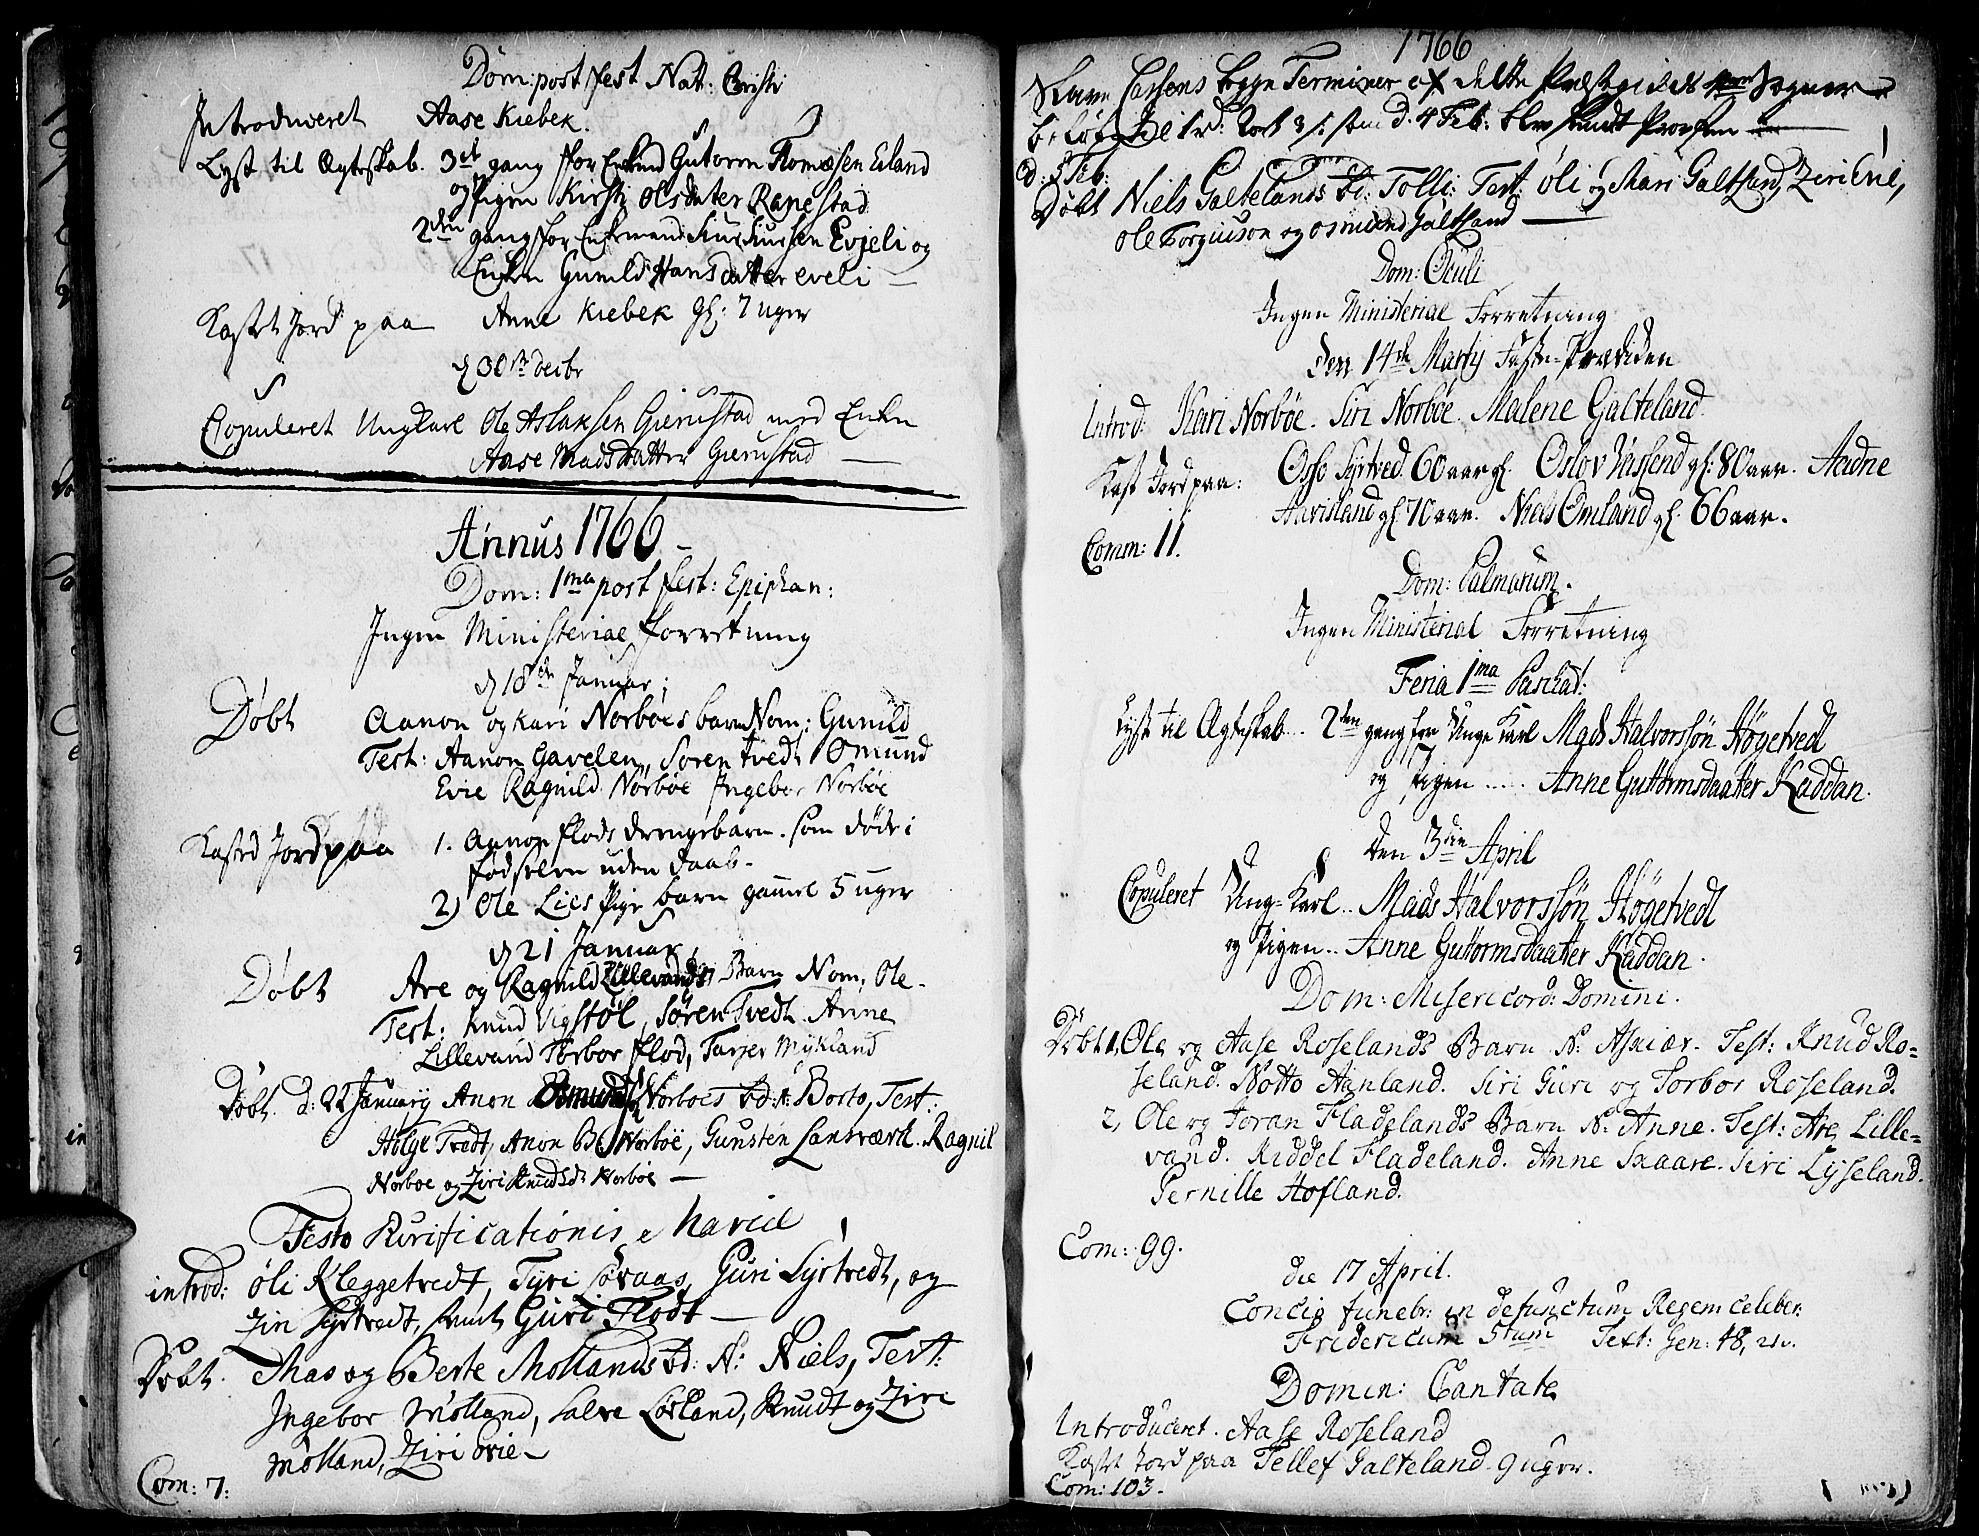 Dom: post fest Nat: Christi
Introduceret Aase Kiebek.
Lyst til Ægteskab. 3de gang for Enkemd Gutorm Thomæsen Eeland
og Pigen Kirsti Olsdater Ranestad
2den gang for Enkemand Evjeli og
Enken Gunild Hansdatter eveli —
Kastet Jord paa Anne Kiebek Gl: 7 uger
d 30te decbr
Copuleret Ungkarl Ole Aslaksen Gierustad med Enken
Aase Madsdatter Gierustad —
Annus 1766 —
Dom: 1ma post fest: Epiphan:
Ingen Ministerial forretning
d 18de Januar;
Døbt Aanon og Kari Norbøes barn Nom: Gunild
Test: Aanon Gavelen, Søren Tvedt Omund
Evie Ragnild Norbøe Ingebor Norbøe
Kasted Jord paa 1. Aanon flods drengebarn. som døde i
fødselen uden daab.
2) Ole Lies Pige barn gammel 5 uger
d 21 Januar,
Døbt Are og Ragnild Lillevands Barn Nom, Ole.
Test: Knud Vigstøl, Søren Tvedt. Anne
Lillevand Torbor flod, Tarjer Mykland
Døbt. d: 22 Januarij Anon Norboes bd: N: Borto, Test:
Helge Tvedt, Anon Norböe, Gunsten Lansværk. Ragnil
Norboe og Ziri Knudsd: Norböe —
Festo Purificationis Mariæ
introd: Öli Kleggetvedt, Tyri Løvaas, Guri Syrtvedt, og
Ziri Syrtvedt, samt Guri Flodt —
Døbt. Mas og Berte Mollands bd: N: Niels, Test:
Ingebor Mölland, Salve Lösland, Knudt og Ziri
Mölland, Ziri Ovie.
Com: 7:
1766
Termixer af dette Præstegields Sogner
d. 4 Feb: blev sendt Provsten
d: 5 Feb:
Døbt Niels Galtelands bd: Tolli: Test: Öli og Mari Galtland, Ziri Evie,
Ole Torgiuson og Osmund Galtland —
Dom: Oculi
Ingen Ministerial Forretning
den 14de Martij Faste-Prædiken
Introd: Kari Norbøe. Siri Norbøe. Malene Galteland.
Kast Jord paa: Osso Syrtved. 60 aar gl. Oslov gl: 80 aar. Aadne
Aavisland gl: 70 aar. Niels Omland gl. 66 aar.
Comm: 11.
Dom: Palmarum.
Ingen Ministerial Forretning
Feria 1ma Paschat:
Lyst til Ægteskab... 2den gang for Unge Karl Mads Halvorssøn Høgetvedt
og Pigen ..... Anne Guttormsdaatter Kaddan.
den 3die April
Copuleret Ung-Karl.. Mads Halvorssøn Høgetvedt
og Pigen.. Anne Guttormsdaatter Kaddan.
Dom: Misericord: Domini.
Døbt 1, Ole og Aase Roselands Barn N: Asniær. Test: Knud Ro=
seland. Notto Aanland. Siri Guri og Torbor Roseland.
2, Ole og Joran Fladelands Barn N: Anne. Test: Are Lille=
vand. Riddel Fladeland. Anne Skaare. Siri Lysseland.
Pernille Hofland.
Com: 99.
die 17 April.
Concio funebr: in defunctum Regem celeber:
Fridericum 5tum Text: Gen: 48, 21.
Domin: Cantate
Introduceret. Aase Roseland
Kastet Jord paa Tellef Galteland 9 uger.
Com: 103.